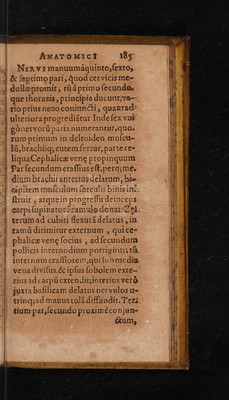 ANATOMICI 185
NERVI manuum à quinto, sexto,
& septimo pari, quod cervicis me-
dullæ promit, tū à primo secundo-
que thoratis, principia ducunt, va-
rio prius nexo coniuncti, quam ad
ulteriora progrediātur Inde sex vul
gò nervorū paria numerantur, quo-
rum primum in deltoiden muscu-
lū, brachiiq; cutem fertur, parte re-
liqua Cephalicæ venę propinquum
Par secundum crassius est, perq; me-
dium brachii anterius delatum, bi-
cipitem musculum surculis binis in-
struit, atque in progressu deinceps
carpi supinatorē ramulo donat. Cæ-
terum ad cubiti flexurā delatus, in
ramū dirimitur externum, qui ce-
phalicæ venę socius, ad secundum
pollicis internodium porrigitur: tū
internum crassiorem, qui sub media
vena divisus, & ipsus sobolem exte-
rius ad carpū extendit; interius verò
juxta basilicam delatus nervulos u-
trinq; ad manus tolā diffundit. Ter-
tium par, secundo proximè conjun-
ctum,